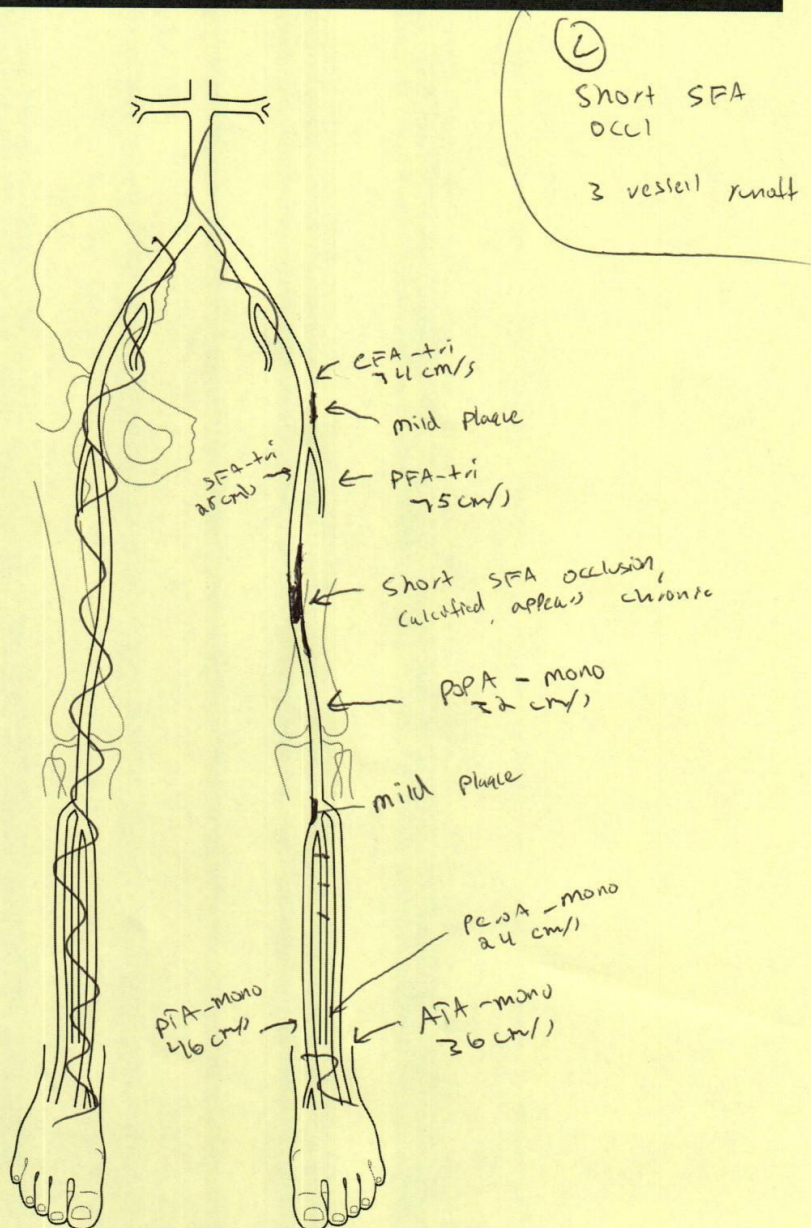 L
Short SFA
OCCl
3 vessell runoff
CFA-tri
74 cm/s
mild plaque
SFA-tri
25 cm/s
PFA-tri
75 cm/s
Short SFA occlusion,
Calcified, appears chronic
POPA - mono
32 cm/s
mild plaque
PeroA - mono
24 cm/s
PTA-mono
46 cm/s
ATA-mono
36 cm/s